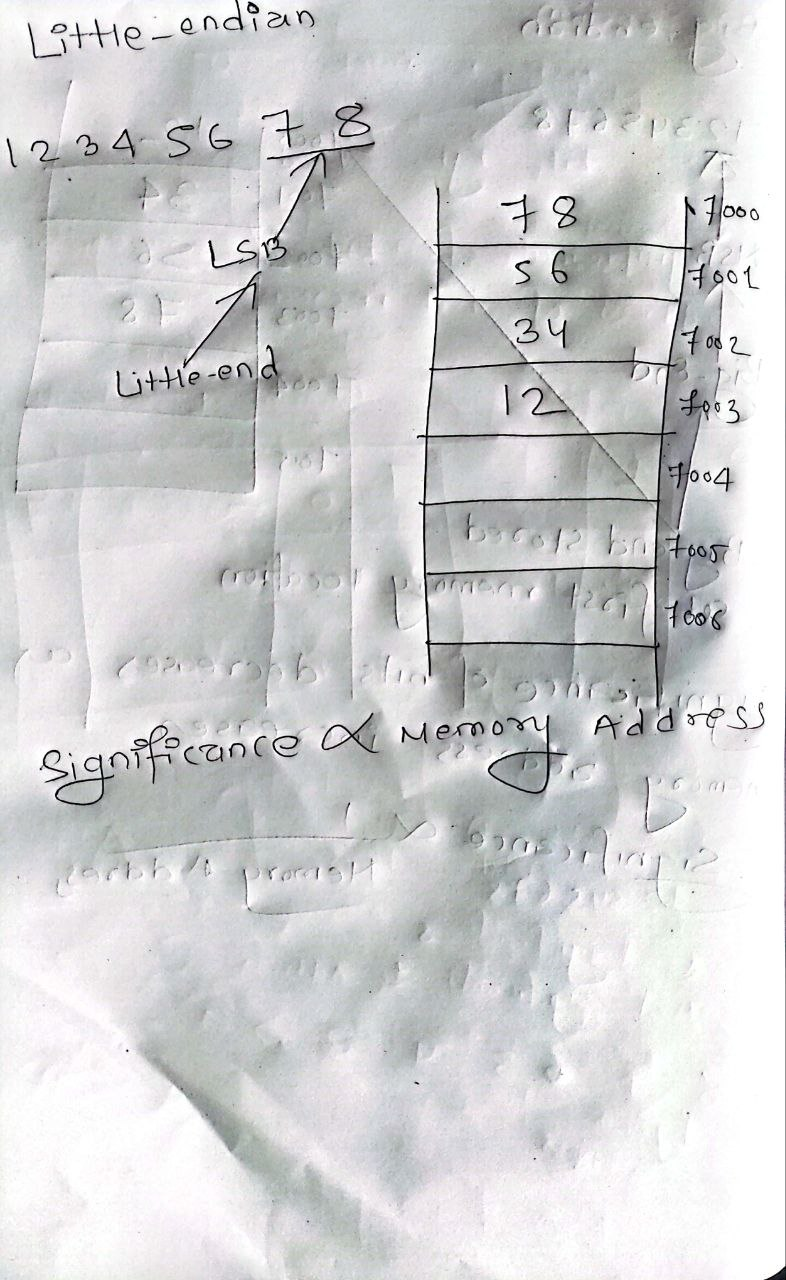 Little-endian
1 2 3 4 5 6 7 8
LSB
Little-end
78 7000
56 7001
34 7002
12 7003
7004
7005
7006
Significance ∝ Memory Address